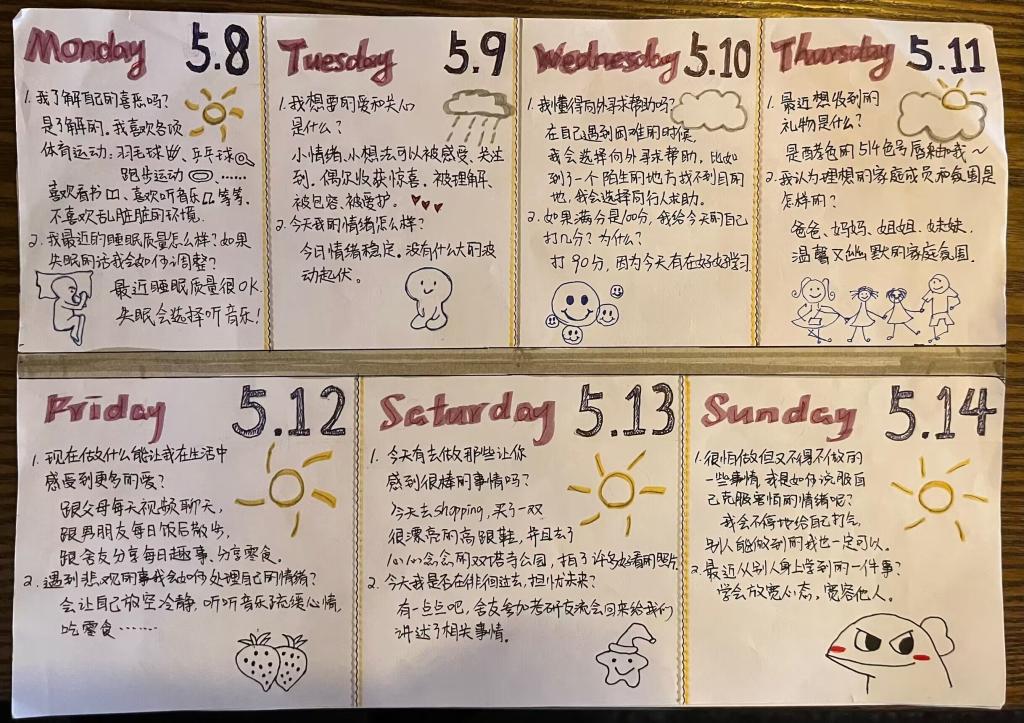 Monday 5.8
1. 我了解自己的喜恶吗？
是了解的。我喜欢各项
体育运动：羽毛球、乒乓球
跑步运动……
喜欢看书、喜欢听音乐等等。
不喜欢乱脏脏的环境。
2. 我最近的睡眠质量怎么样？如果
失眠的话我会如何调整？
最近睡眠质量很OK.
失眠会选择听音乐！
Tuesday 5.9
1. 我想要的爱和关心
是什么？
小情绪、小想法可以被感受、关注
到。偶尔收获惊喜。被理解、
被包容、被爱护。
2. 今天我的情绪怎么样？
今日情绪稳定。没有什么大的波
动起伏。
Wednesday 5.10
1. 我懂得向外寻求帮助吗？
在自己遇到困难的时候，
我会选择向外寻求帮助，比如
到了一个陌生的地方找不到目的
地，我会选择向行人求助。
2. 如果满分是100分，我给今天的自己
打几分？为什么？
打90分，因为今天有在好好学习
Thursday 5.11
1. 最近想收到的
礼物是什么？
是酵色的514色号唇釉哦～
2. 我认为理想的家庭成员和氛围是
怎样的？
爸爸、妈妈、姐姐、妹妹.
温馨又幽默的家庭氛围.
Friday 5.12
1. 现在做什么能让我在生活中
感受到更多的爱？
跟父母每天视频聊天，
跟男朋友每日饭后散步，
跟舍友分享每日趣事、分享零食。
2. 遇到悲观的事我会如何处理自己的情绪？
会让自己放空冷静，听听音乐舒缓心情，
吃零食……
Saturday 5.13
1. 今天有去做那些让你
感到很棒的事情吗？
今天去shopping，买了一双
很漂亮的高跟鞋，并且去了
心心念念的双塔寺公园，拍了许多好看的照片.
2. 今天我是否在徘徊过去，担忧未来？
有一点点吧，舍友参加考研交流会回来给我们
讲述了相关事情。
Sunday 5.14
1. 很怕做但又不得不做的
一些事情，我是如何说服自
己克服害怕的情绪呢？
我会不停地给自己打气，
别人能做到的我也一定可以。
2. 最近从别人身上学到的一件事？
学会放宽心态，宽容他人。